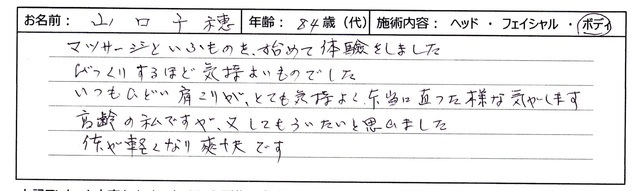 お名前： 山口千穂 年齢： 84歳（代） 施術内容： ヘッド ・ フェイシャル ・ ボディ
マッサージというものを、始めて体験をしました
びっくりするほど気持よいものでした
いつもひどい肩こりが、とても気持よく、本当に直った様な気がします
高齢の私ですが、又してもらいたいと思いました
体が軽くなり爽快です